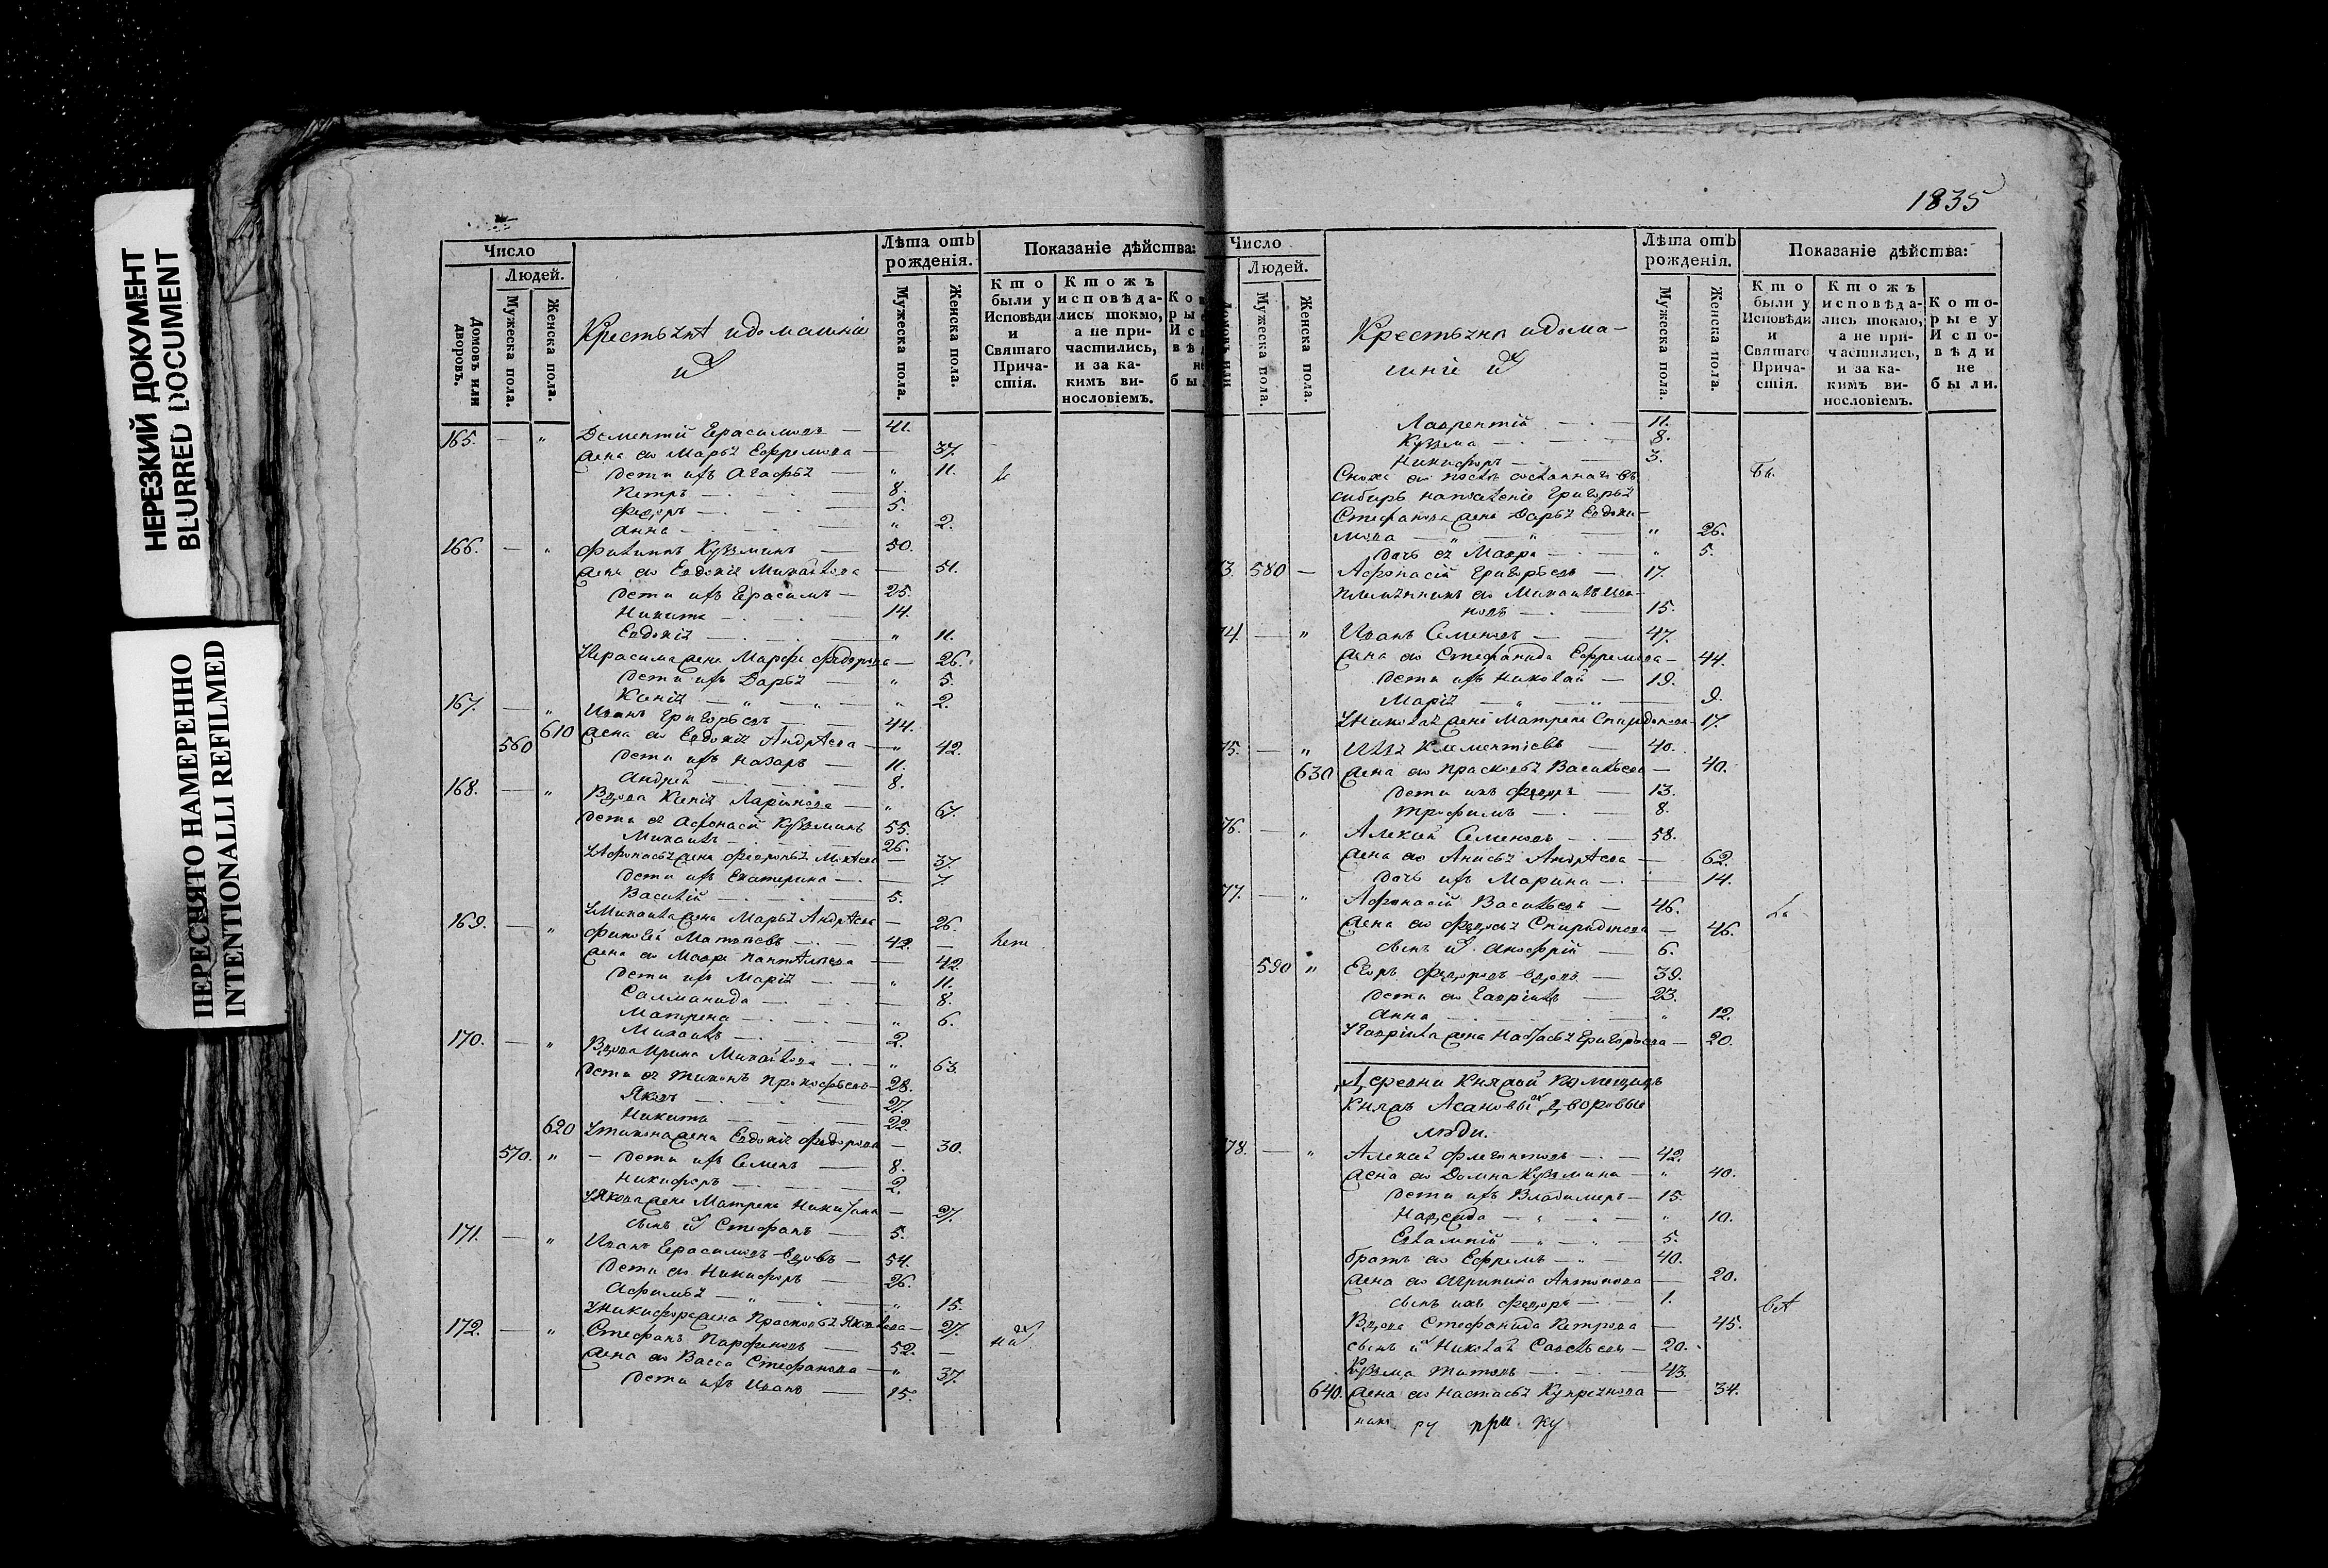 НЕРЕЗКИЙ ДОКУМЕНТ
BLURRED DOCUMENT
ПЕРЕСНЯТО НАМЕРЕННО
INTENTIONALLI REFILMED
Число
Людей.
Домовъ или дворовъ.
Мужеска пола.
Женска пола.
Крестьянѣ идомашніе
Лѣта отъ рожденія.
Мужеска пола.
Женска пола.
Показаніе дѣйства:
Кто были у Исповѣди и Святаго Причастія.
Ктожъ исповѣдались токмо, а не причастились, и за какимъ винословіемъ.
165. — " Дементій Герасимовъ — 41.
жена ево Марья Ефремова — 37.
Дети ихъ Агафья — " 11.
Петръ — 8.
Федоръ — 5.
Анна — " 2.
166. — " Филипъ Кузминъ — 50.
жена ево Евдокія Михайлова — 51.
Дети ихъ Герасимъ — 25.
Никита — 14.
Евдокія — " 11.
УГерасима жена Марфа Федорова — 26.
Дети ихъ Дарья — " 5.
Ксенія — " 2.
167. — " Иванъ Григорьевъ — 44.
610 жена ево Евдокія Андрѣева — " 42.
560 Дети ихъ Назаръ — 11.
Андрей — 8.
168. — " Вдова Ксенія Ларіонова — " 67.
Дети ея Афонасій Кузминъ 55.
Михаилъ — 26.
УАфонасья жена Федосья — 37.
Дети ихъ Екатерина — 7.
Василій — 5.
УМихаила жена Марья Андрѣева — 26.
169. — " Матвѣевъ — 42. —
жена ево Мавра Пантѣлѣева — 42.
Дети ихъ Марія — " 11.
Саламанида — 8.
Матрена — " 6.
Михаилъ — 2.
170. — " Вдова Ирина Михайлова — " 63.
Дети ея Тихонъ Прокофьевъ — 28.
Яковъ — 27.
Никита — 22.
620 УТихона жена Евдокія Федорова — 30.
570. " — Дети ихъ Семенъ — 8.
Никифоръ — 2.
УЯкова жена Матрена — 27.
сынъ Стефанъ — 5.
171. — " Иванъ Герасимовъ вдовъ — 54.
Дети ево Никифоръ — 26.
Афимья — " 15.
УНикифора жена Прасковья Яковлева — 27.
172. — " Стефанъ Парфеновъ — 52. —
жена ево Васса Стефанова — " 37.
Дети ихъ Иванъ — 15.
1835
Число
Людей.
Мужеска пола.
Женска пола.
Крестьяне идома-
шніе
Лѣта отъ рожденія.
Мужеска пола.
Женска пола.
Показаніе дѣйства:
Кто были у Исповѣди и Святаго Причастія.
Ктожъ исповѣдались токмо, а не причастились, и за какимъ винословіемъ.
Которые у Исповѣди не были.
Лаврентій — 11.
Кузма — 8.
Никифоръ — 3.
Сноха ево посля сосланнаго въ
сибирь напоселеніе Григорья
Стефанова жена Дарья Евдоки-
мова — " 26.
дочь ея Мавра — " 5.
580 — Афонасій Григорьевъ — 17.
племянникъ ево Михаилъ Ива-
новъ — 15.
74. — " Иванъ Семеновъ — 47.
жена ево Стефанида Ефремова — 44.
Дети ихъ Николай — 19.
Марія — 9.
УНиколая жена Матрена Спиридонова — 17.
75. — " Илья Клементіевъ — 40.
630 жена ево Прасковья Васильева — 40.
Дети ихъ Федоръ — 13.
Трофимъ — 8.
76. — " Алексѣй Семеновъ — 58.
жена ево Анисья Андрѣева — 62.
Дочь ихъ Марина — 14.
77. — " Афонасій Васильевъ — 46.
жена ево Федосья Спиридонова — 46.
сынъ Анофрій — 6.
590 " Егоръ Федоровъ вдовъ — 39.
Дети ево Гавріилъ — 23.
Анна — " 12.
УГавріила жена Настасья Григорьева — 20.
Деревни Княжой помещицъ
Князь Асановый дворовые
люди.
78. — " Алексѣй — 42.
жена ево Домна Кузмина — " 40.
Дети ихъ Владимеръ — 15.
Надежда — " 10.
Евлампій — 5.
братъ ево Ефремъ — 40.
жена ево Агрипина Антонова — 20.
сынъ ихъ Федоръ — 1.
Вдова Стефанида Петрова — 45.
сынъ Николай Савельевъ — 20.
Кузма Титовъ — 43.
640. жена ево Настасья — 34.